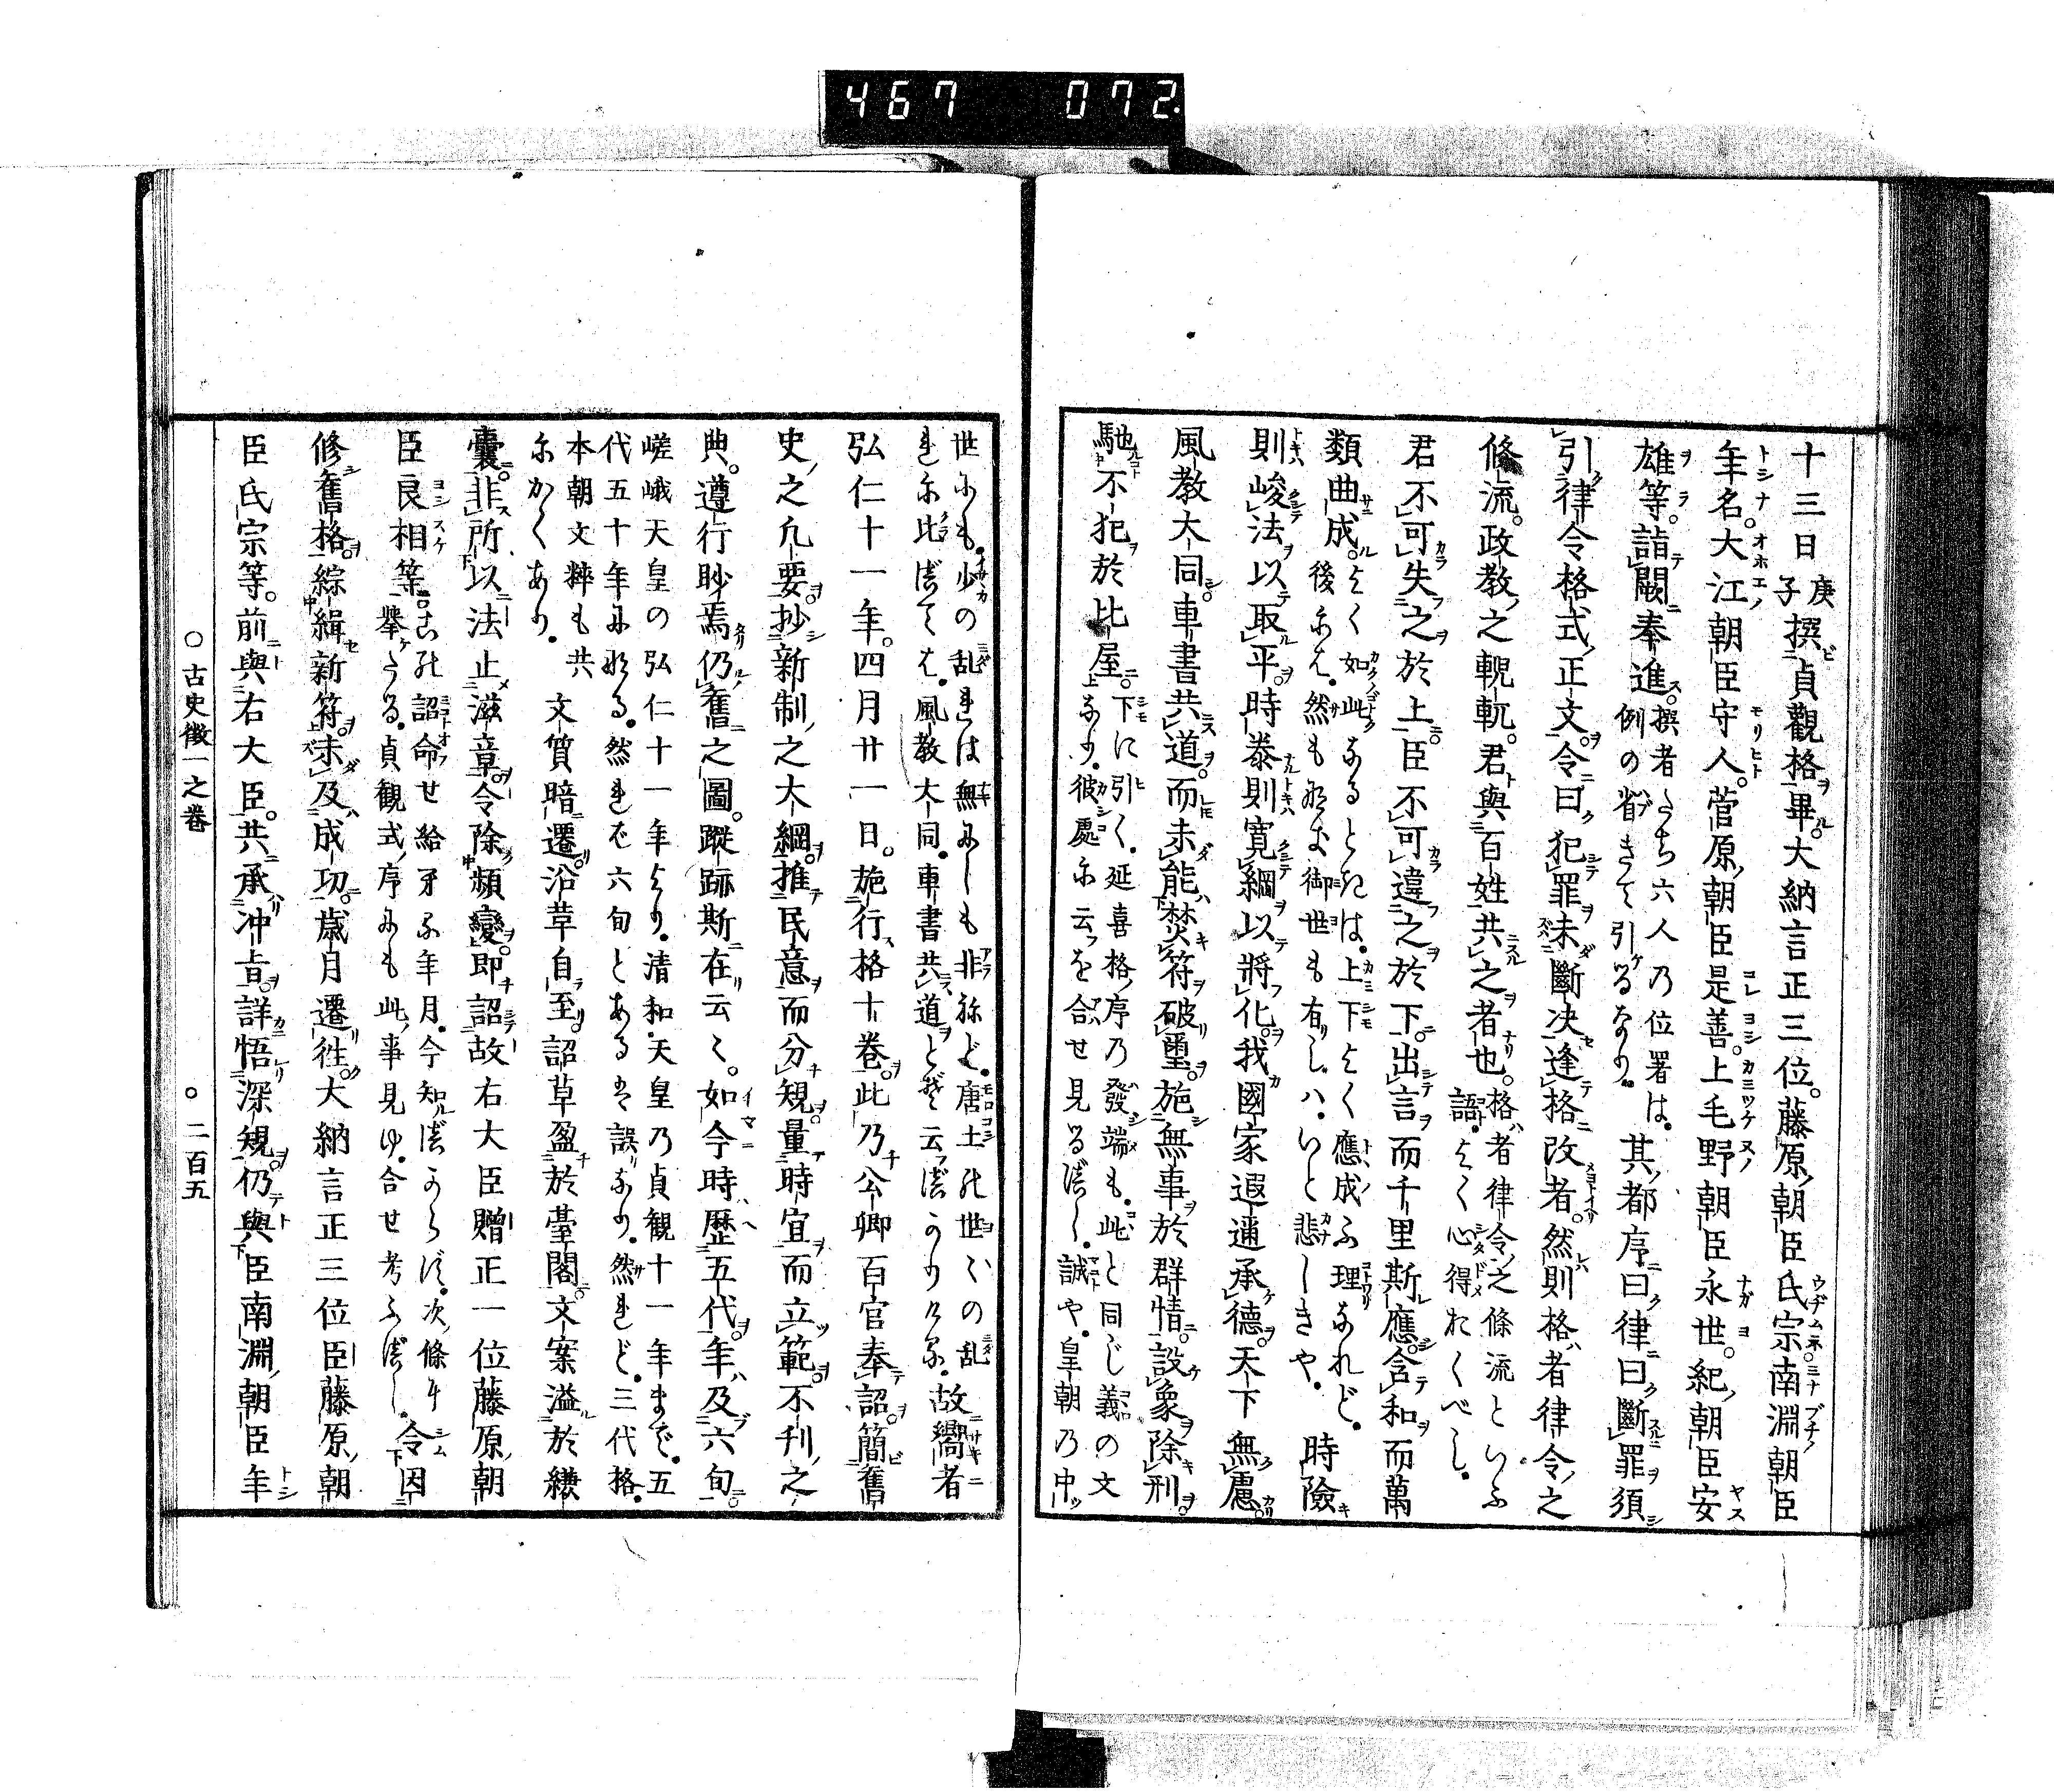 467 072.
十三日庚子撰貞觀格畢。大納言正三位。藤原朝臣氏宗。南淵朝臣
年名。大江朝臣守人。菅原朝臣是善。上毛野朝臣永世。紀朝臣安
雄等。詣闕奉進。撰者たち六人乃位署は。例の省きて引けるなり。其都序曰。律曰。斷罪須
引律令格式正文。令曰。犯罪未斷决逢格改者。然則格者律令之
條流。政教之輗軏。君與百姓共之者也。格者律令之條流といふ語。よく心得おくべし。
君不可失之於上。臣不可違之於下。出言而千里斯應。含和而萬
類曲成。よく如此なるときは。上下よく應成ふ理なれど。後には。然も有る御世も有しハ。いと悲しきや。時險
則峻法以取平。時泰則寛綱以將化。我國家遐邇承德。天下無慮。
風教大同。車書共道。而未能焚符破璽。施無事於群情。設象除刑。
馳不犯於比屋。下に引く。延喜格序乃發端も。此と同じ義の文なり。彼處に云ふを合せ見るべし。誠や。皇朝乃中
世にも。少の乱れは無にしも非ねど。唐土の世々の乱れに此べては。風教大同。車書共道とぞ云べかりける。故嚮者
弘仁十一年。四月廿一日。施行格十卷。此乃公卿百官奉詔。簡舊
史之凡要。抄新制之大綱。推民意而分規。量時宜而立範。不刋之
典。遵行眇焉。仍舊之圖。蹤跡斯在云々。如今時歷五代。年及六旬。
嵯峨天皇の弘仁十一年より。清和天皇乃貞観十一年まで。五代五十年になる。然れば六旬とあるは誤なり。然れど。三代格。
本朝文粹も共にかくあり。文質暗遷。沿革自至。詔草盈於臺閣。文案溢於縑
囊。非所以法止滋章。令除頻變。即詔故右大臣贈正一位藤原朝
臣良相等。古の詔命せ給牙る年月。今知べからず。次條に擧たる。貞観式序にも此事見ゆ。合せ考ふべし。令因
修舊格。綜緝新符。未及成功。歳月遷往。大納言正三位臣藤原朝
臣氏宗等。前與右大臣。共承冲旨。詳悟深規。仍與臣南淵朝臣年
○古史徴一之巻 ○二百五